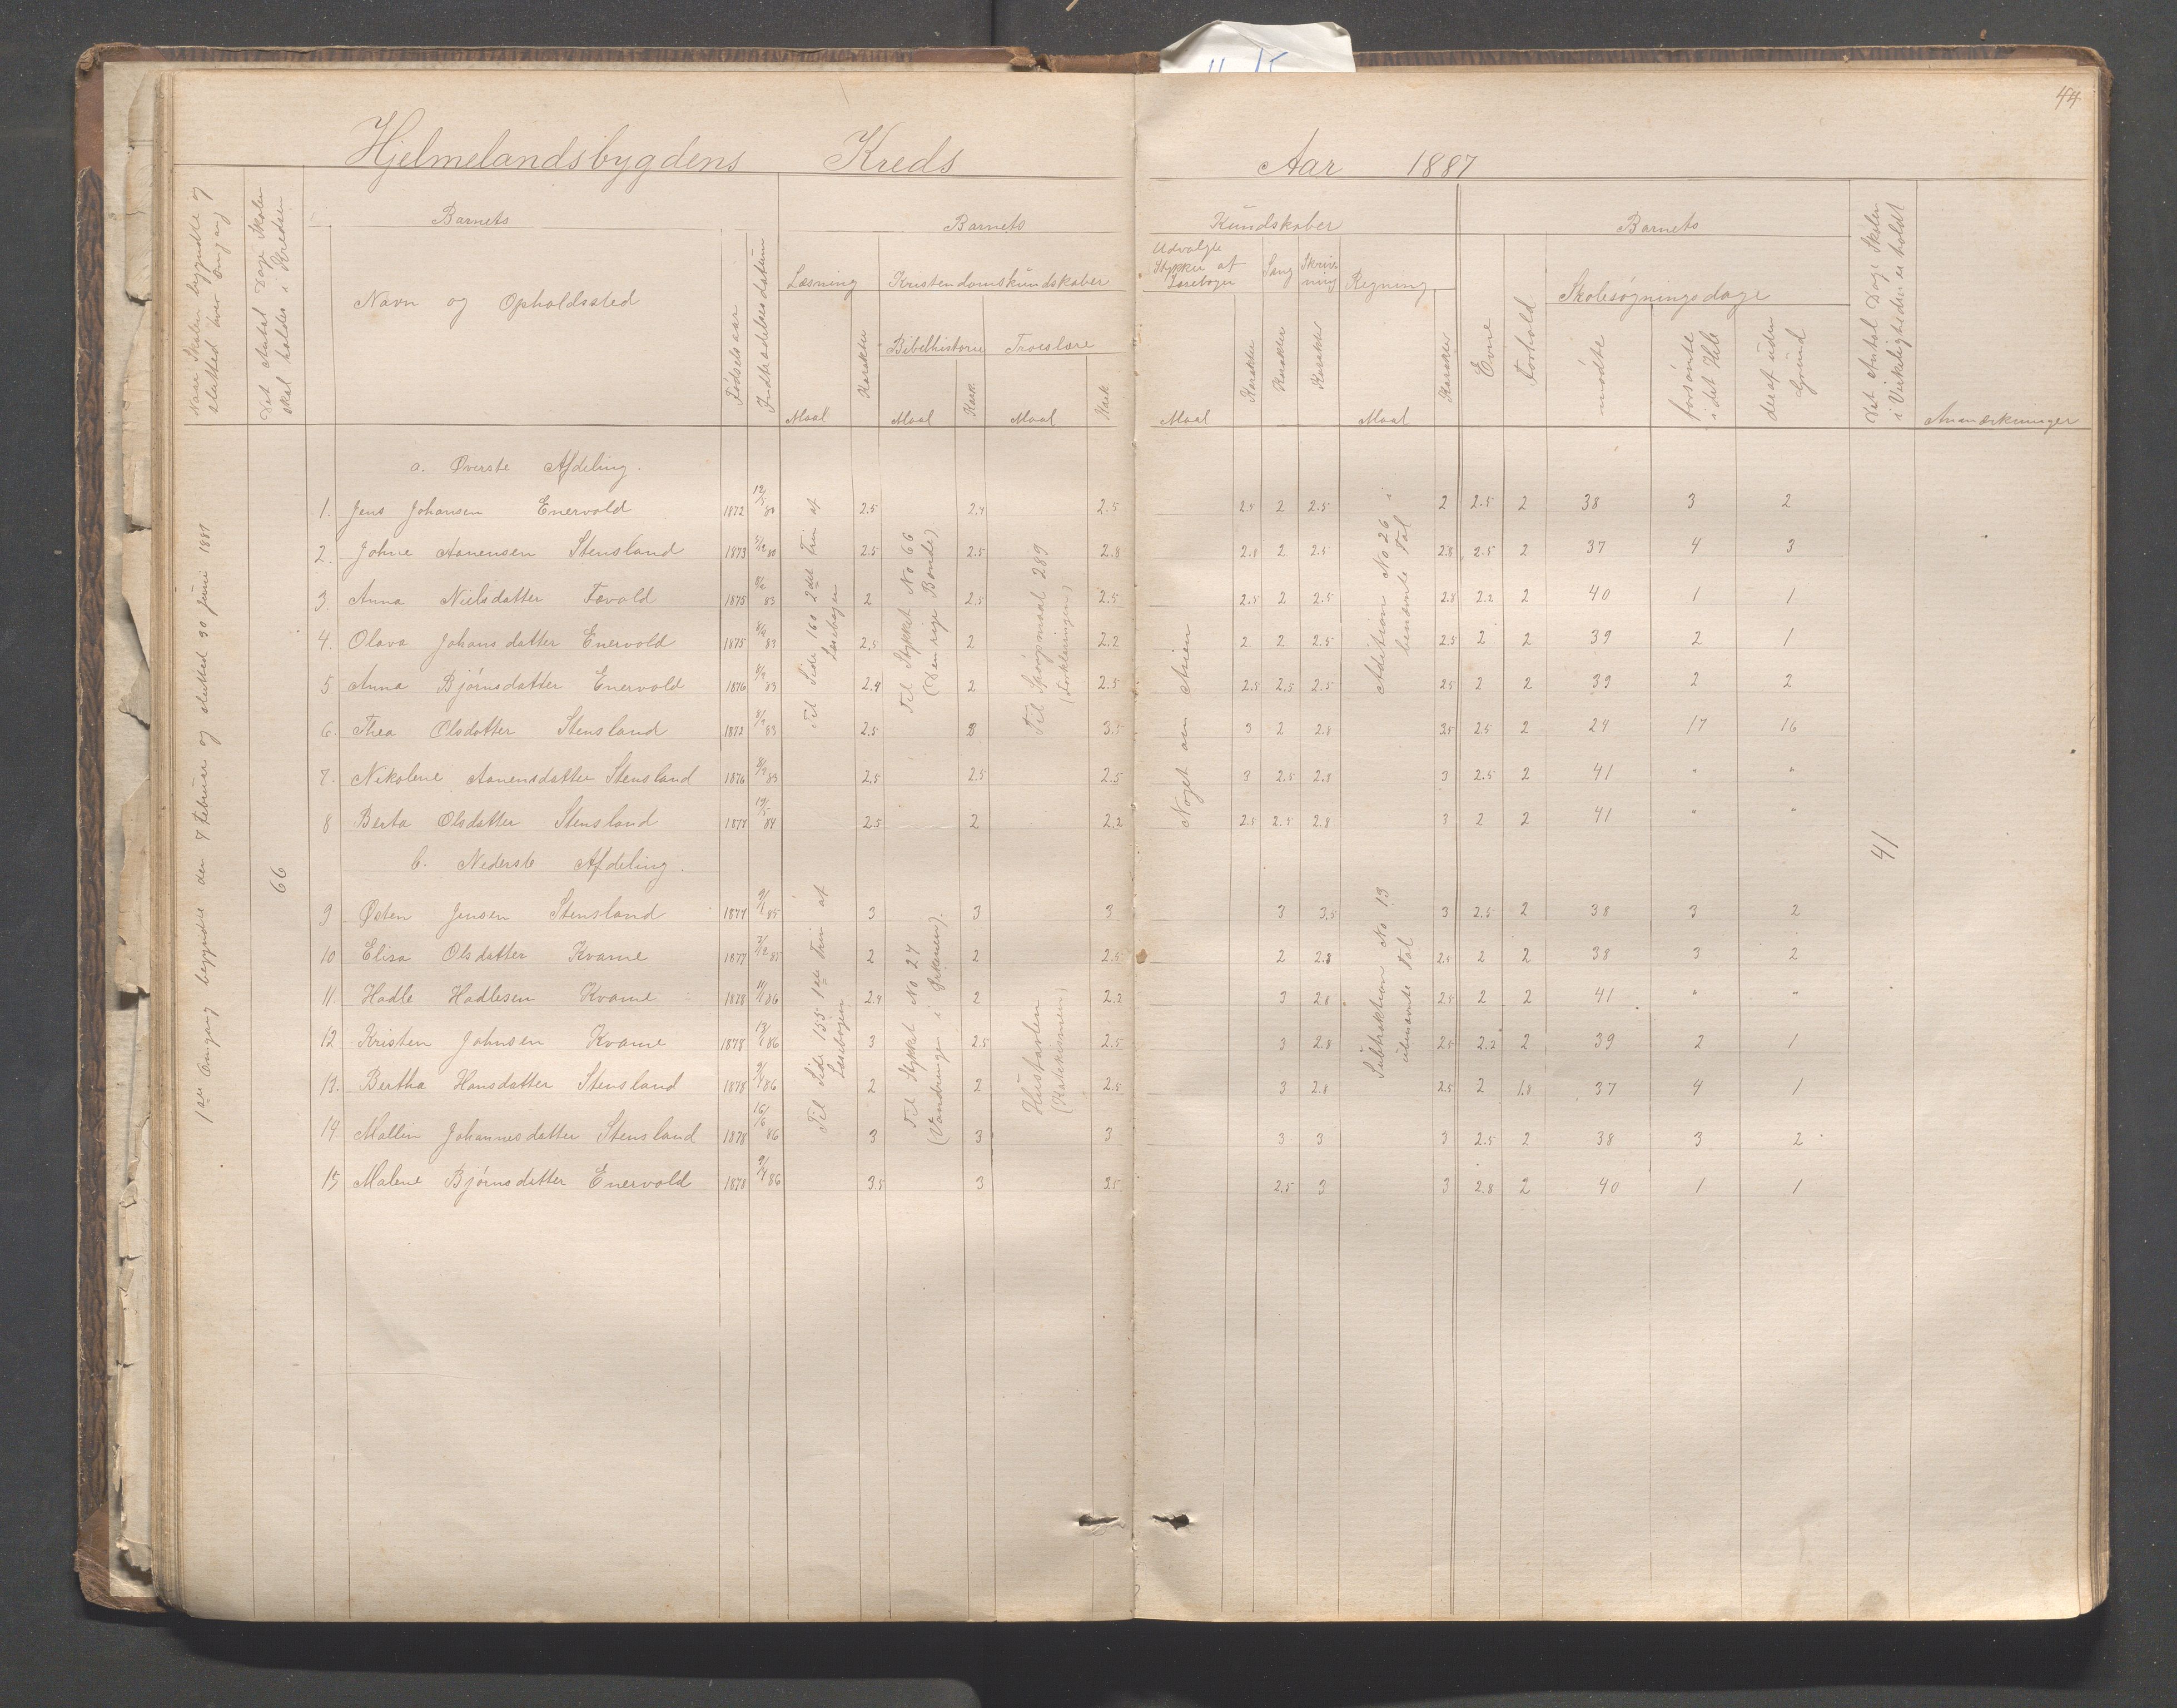 44
Hjelmelandsbygdens Kreds Aar 1887
Naar Skolen begyndte og
slutted hver Omgang
Det Antal Dage Skolen
skal holdes i Kredsen
Barnets
Navn og Opholdssted
Fødselsaar
Indtrædelsesdatum
Barnets Kundskaber
Læsning
Maal
Karakter
Kristendomskundskaber
Bibelhistorie
Maal
Kark.
Troeslære
Maal
Kark
Udvalgte
Stykker af
Læsebogen
Maal
Karakter
Sang
Karakter
Skriv-
ning
Karakter
Regning
Maal
Karakter
Barnets
Evne
Forhold
Skolesøgningsdage
mødte
forsømte
i det Hele
deraf uden
Grund
Det Antal Dage Skolen
i Virkeligheden er holdt
Anmærkninger
1ste Omgang begyndte den 7 Februar og slutted 30 Juni 1887
66
a. Øverste Afdeling.
1. Jens Johansen Enervold 1872 12/5 80 2.5 2.4 2.5 2.5 2 2.5 2 2.5 2 38 3 2
2. Johne Aanensen Stensland 1873 5/12 80 2.5 2.5 2.8 2.8 2 2.5 2.8 2.5 2 37 4 3
3. Anna Nielsdatter Favold 1875 83 2 2.5 2.5 2.5 2 2.5 2.8 2.2 2 40 1 1
4. Olava Johansdatter Enervold 1875 8/9 83 2.5 2 2.2 2 2 2.5 2.5 2 2 39 2 1
5 Anna Bjørnsdatter Enervold 1876 8/9 83 2.4 2 2.5 2.5 2.5 2.5 2.5 2 2 39 2 2
6. Thea Olsdatter Stensland 1873 8/9 83 2.5 3 3.5 3 2 2.8 3.5 2.5 2 24 17 16
7. Nikolene Aanensdatter Stensland 1876 8/9 83 2.5 2.5 2.5 3 2.5 2.8 3 2.5 2 41 " "
8 Berta Olsdatter Stensland 1878 19/5 84 2.5 2 2.2 2.5 2.5 2.8 3 2 2 41 " "
Til Side 160 2det Trin af
Læsebogen
Til Stykket No 66
(Den rige Bonde)
Til Spørgsmaal 289
(Forklaringen)
Noget om Asien
Addition No 26 i
benævnte Tal
b. Nederste Afdeling.
41
9 Østen Jensen Stensland 1877 9/1 85 3 3 3 3 3.5 3 2.5 2 38 3 2
10 Elisa Olsdatter Kvame 1877 7/12 85 2 2 2.5 2 2.8 2.5 2 2 38 3 2
11. Hadle Hadlesen Kvame 1878 11/1 86 2.4 2 2.2 3 2.8 2.5 2 2 41 " "
12 Kristen Johnsen Kvame 1878 13/1 86 3 2.5 2.5 3 2.8 2.5 2.2 2 39 2 1
13. Bertha Hansdatter Stensland 1878 9/4 86 2 2 2.5 3 2.8 2.5 2 1.8 37 4 1
14. Mallin Johannesdatter Stensland 1878 16/6 86 3 3 3 3 3 3 2.5 2 38 3 2
15 Malene Bjørnsdatter Enervold 1878 9/4 86 3.5 3 3.5 2.5 3 3 2.8 2 40 1 1
Til Side 155 1ste Trin af
Læsebogen
Til Stykket No 24
(Vandringen i Ørkenen).
Hustavlen
(Katekismen)
Subtraktion No 13
ubenævnte Tal